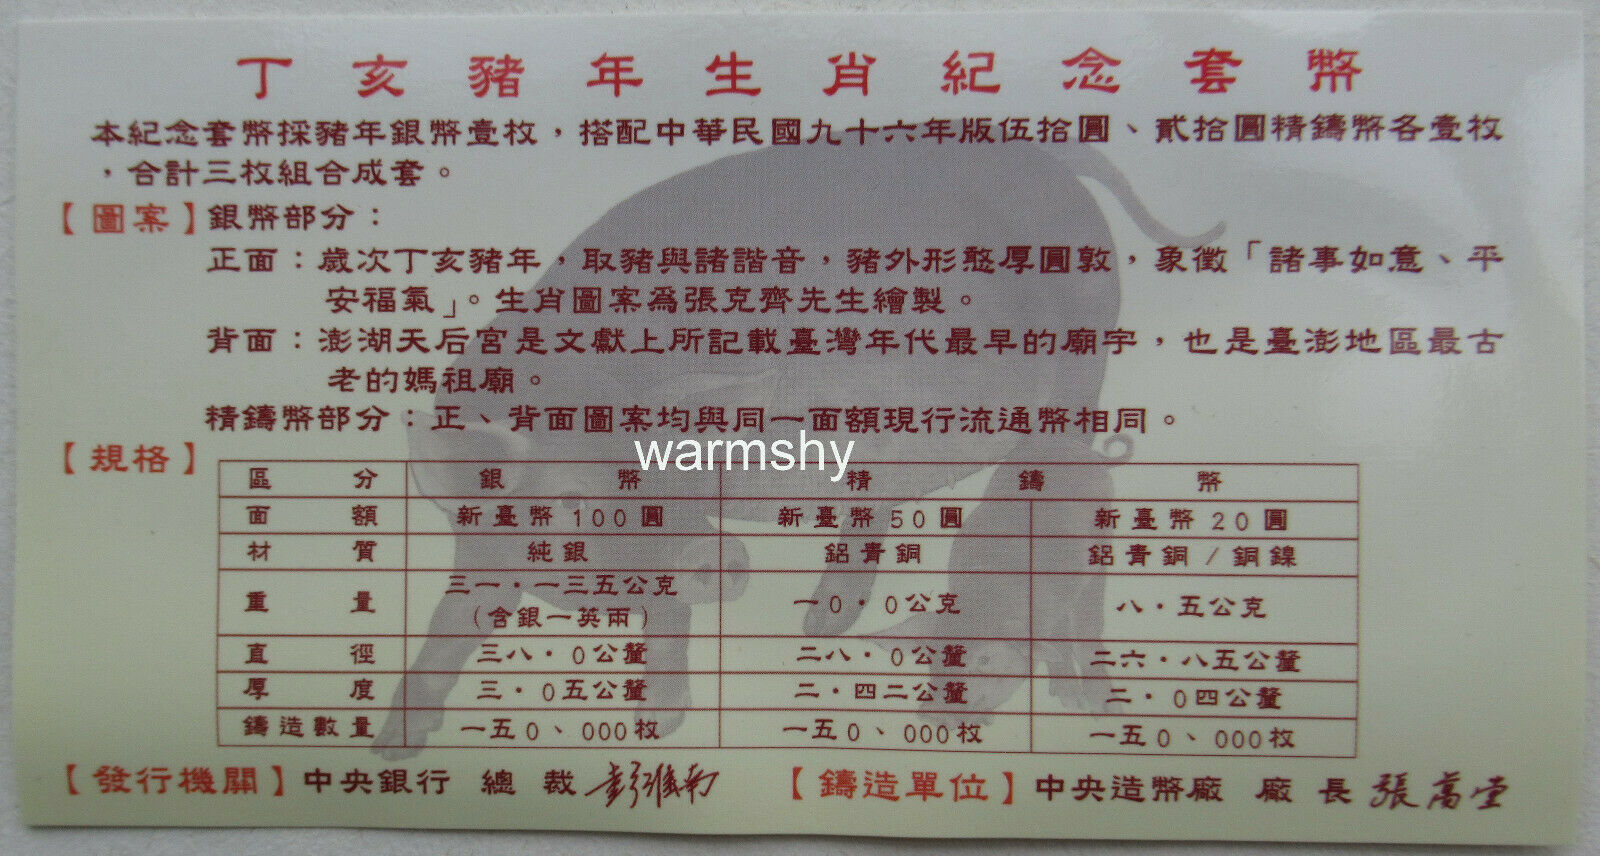 丁亥豬年生肖紀念套幣
本紀念套幣採豬年銀幣壹枚，搭配中華民國九十六年版伍拾圓、貳拾圓精鑄幣各壹枚
，合計三枚組合成套。
【圖案】銀幣部分：
正面：歲次丁亥豬年，取豬與諸諧音，豬外形憨厚圓敦，象徵「諸事如意、平
安福氣」。生肖圖案為張克齊先生繪製。
背面：澎湖天后宮是文獻上所記載臺灣年代最早的廟宇，也是臺澎地區最古
老的媽祖廟。
精鑄幣部分：正、背面圖案均與同一面額現行流通幣相同。
warmshy
【規格】
區分 銀幣 精鑄幣
面額 新臺幣100圓 新臺幣50圓 新臺幣20圓
材質 純銀 鋁青銅 鋁青銅/銅鎳
重量 三一·一三五公克 一0·0公克 八·五公克
（含銀一英兩）
直徑 三八·0公釐 二八·0公釐 二六·八五公釐
厚度 三·0五公釐 二·四二公釐 二·0四公釐
鑄造數量 一五0、000枚 一五0、000枚 一五0、000枚
【發行機關】中央銀行 總裁 彭淮南 【鑄造單位】中央造幣廠 廠長 張萬堂